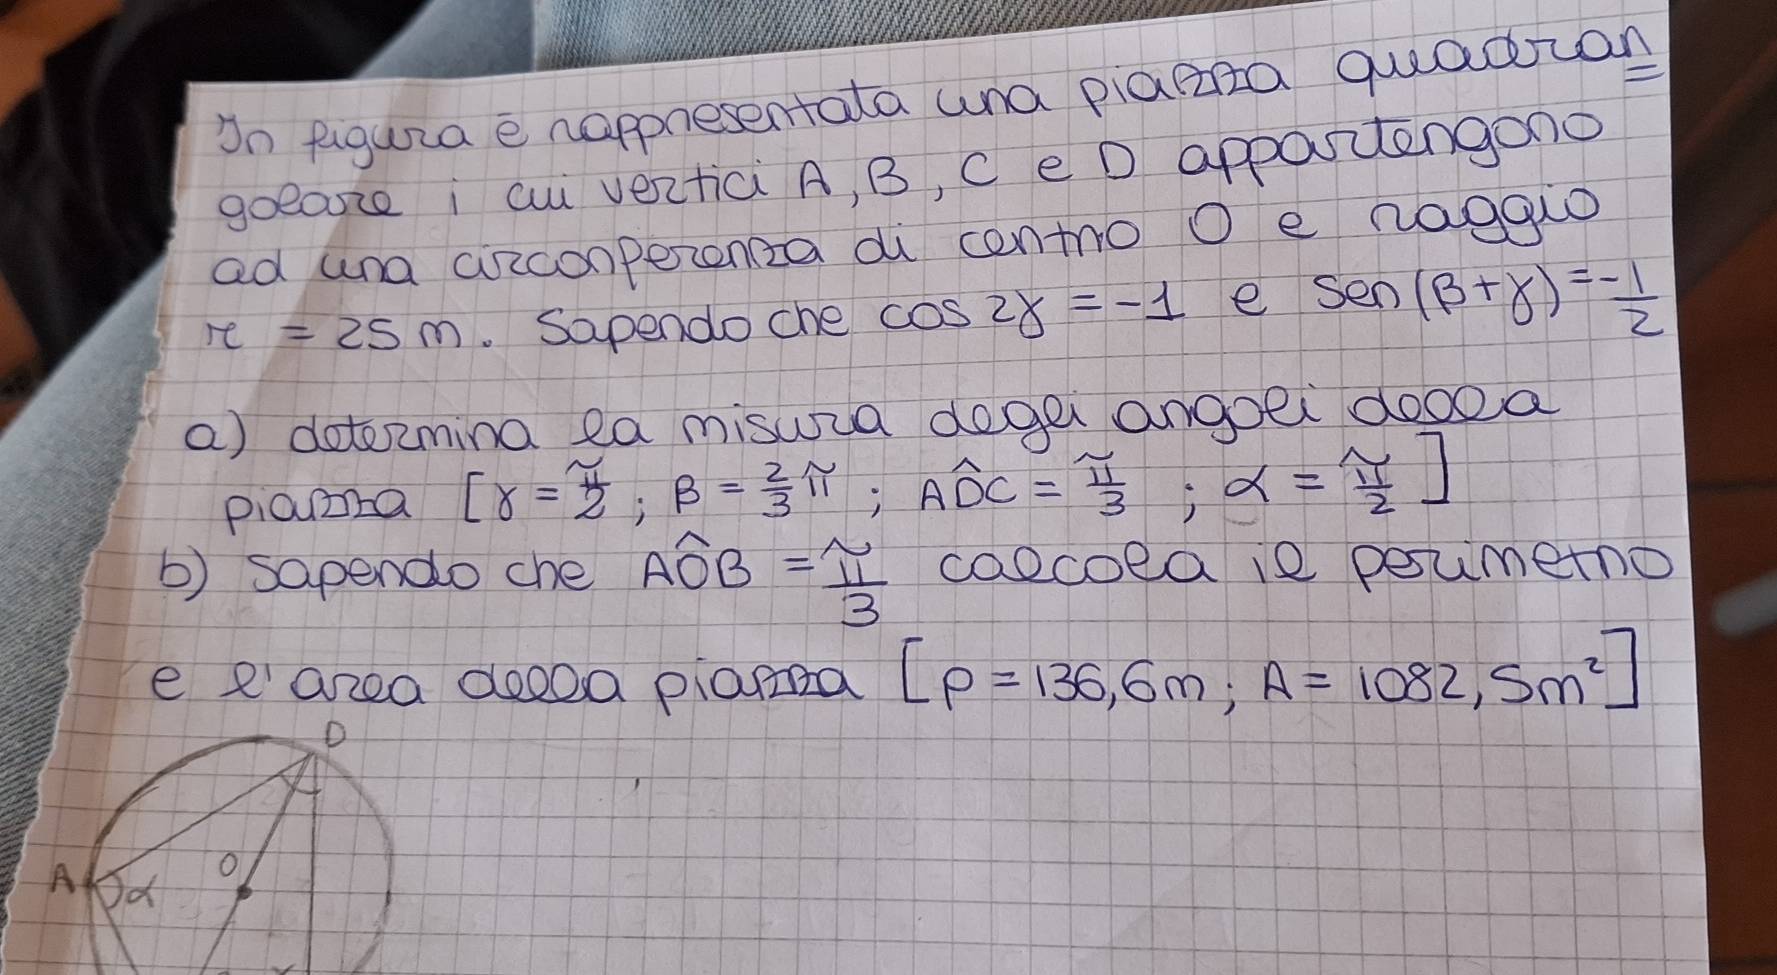 In figura è rappresentata una piazza quadran=
golare i cui vertici A, B, C e D appartengono
ad una circonferenza di centro O e raggio
r = 25 m. Sapendo che cos 2γ = -1 e sen (β+γ) = -1/2
a) determina la misura degli angoli della
piazza [γ = π/2 ; β = 2/3 π ; AD̂C = π/3 ; α = π/2 ]
b) Sapendo che AÔB = π/3 calcola il perimetro
e l'area della piazza [p = 136,6 m ; A = 1082,5 m²]
D
O
A α
γ